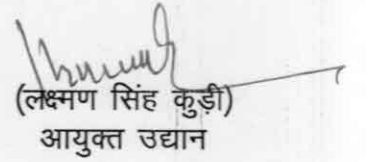 (लक्ष्मण सिंह कुड़ी)
आयुक्त उद्यान